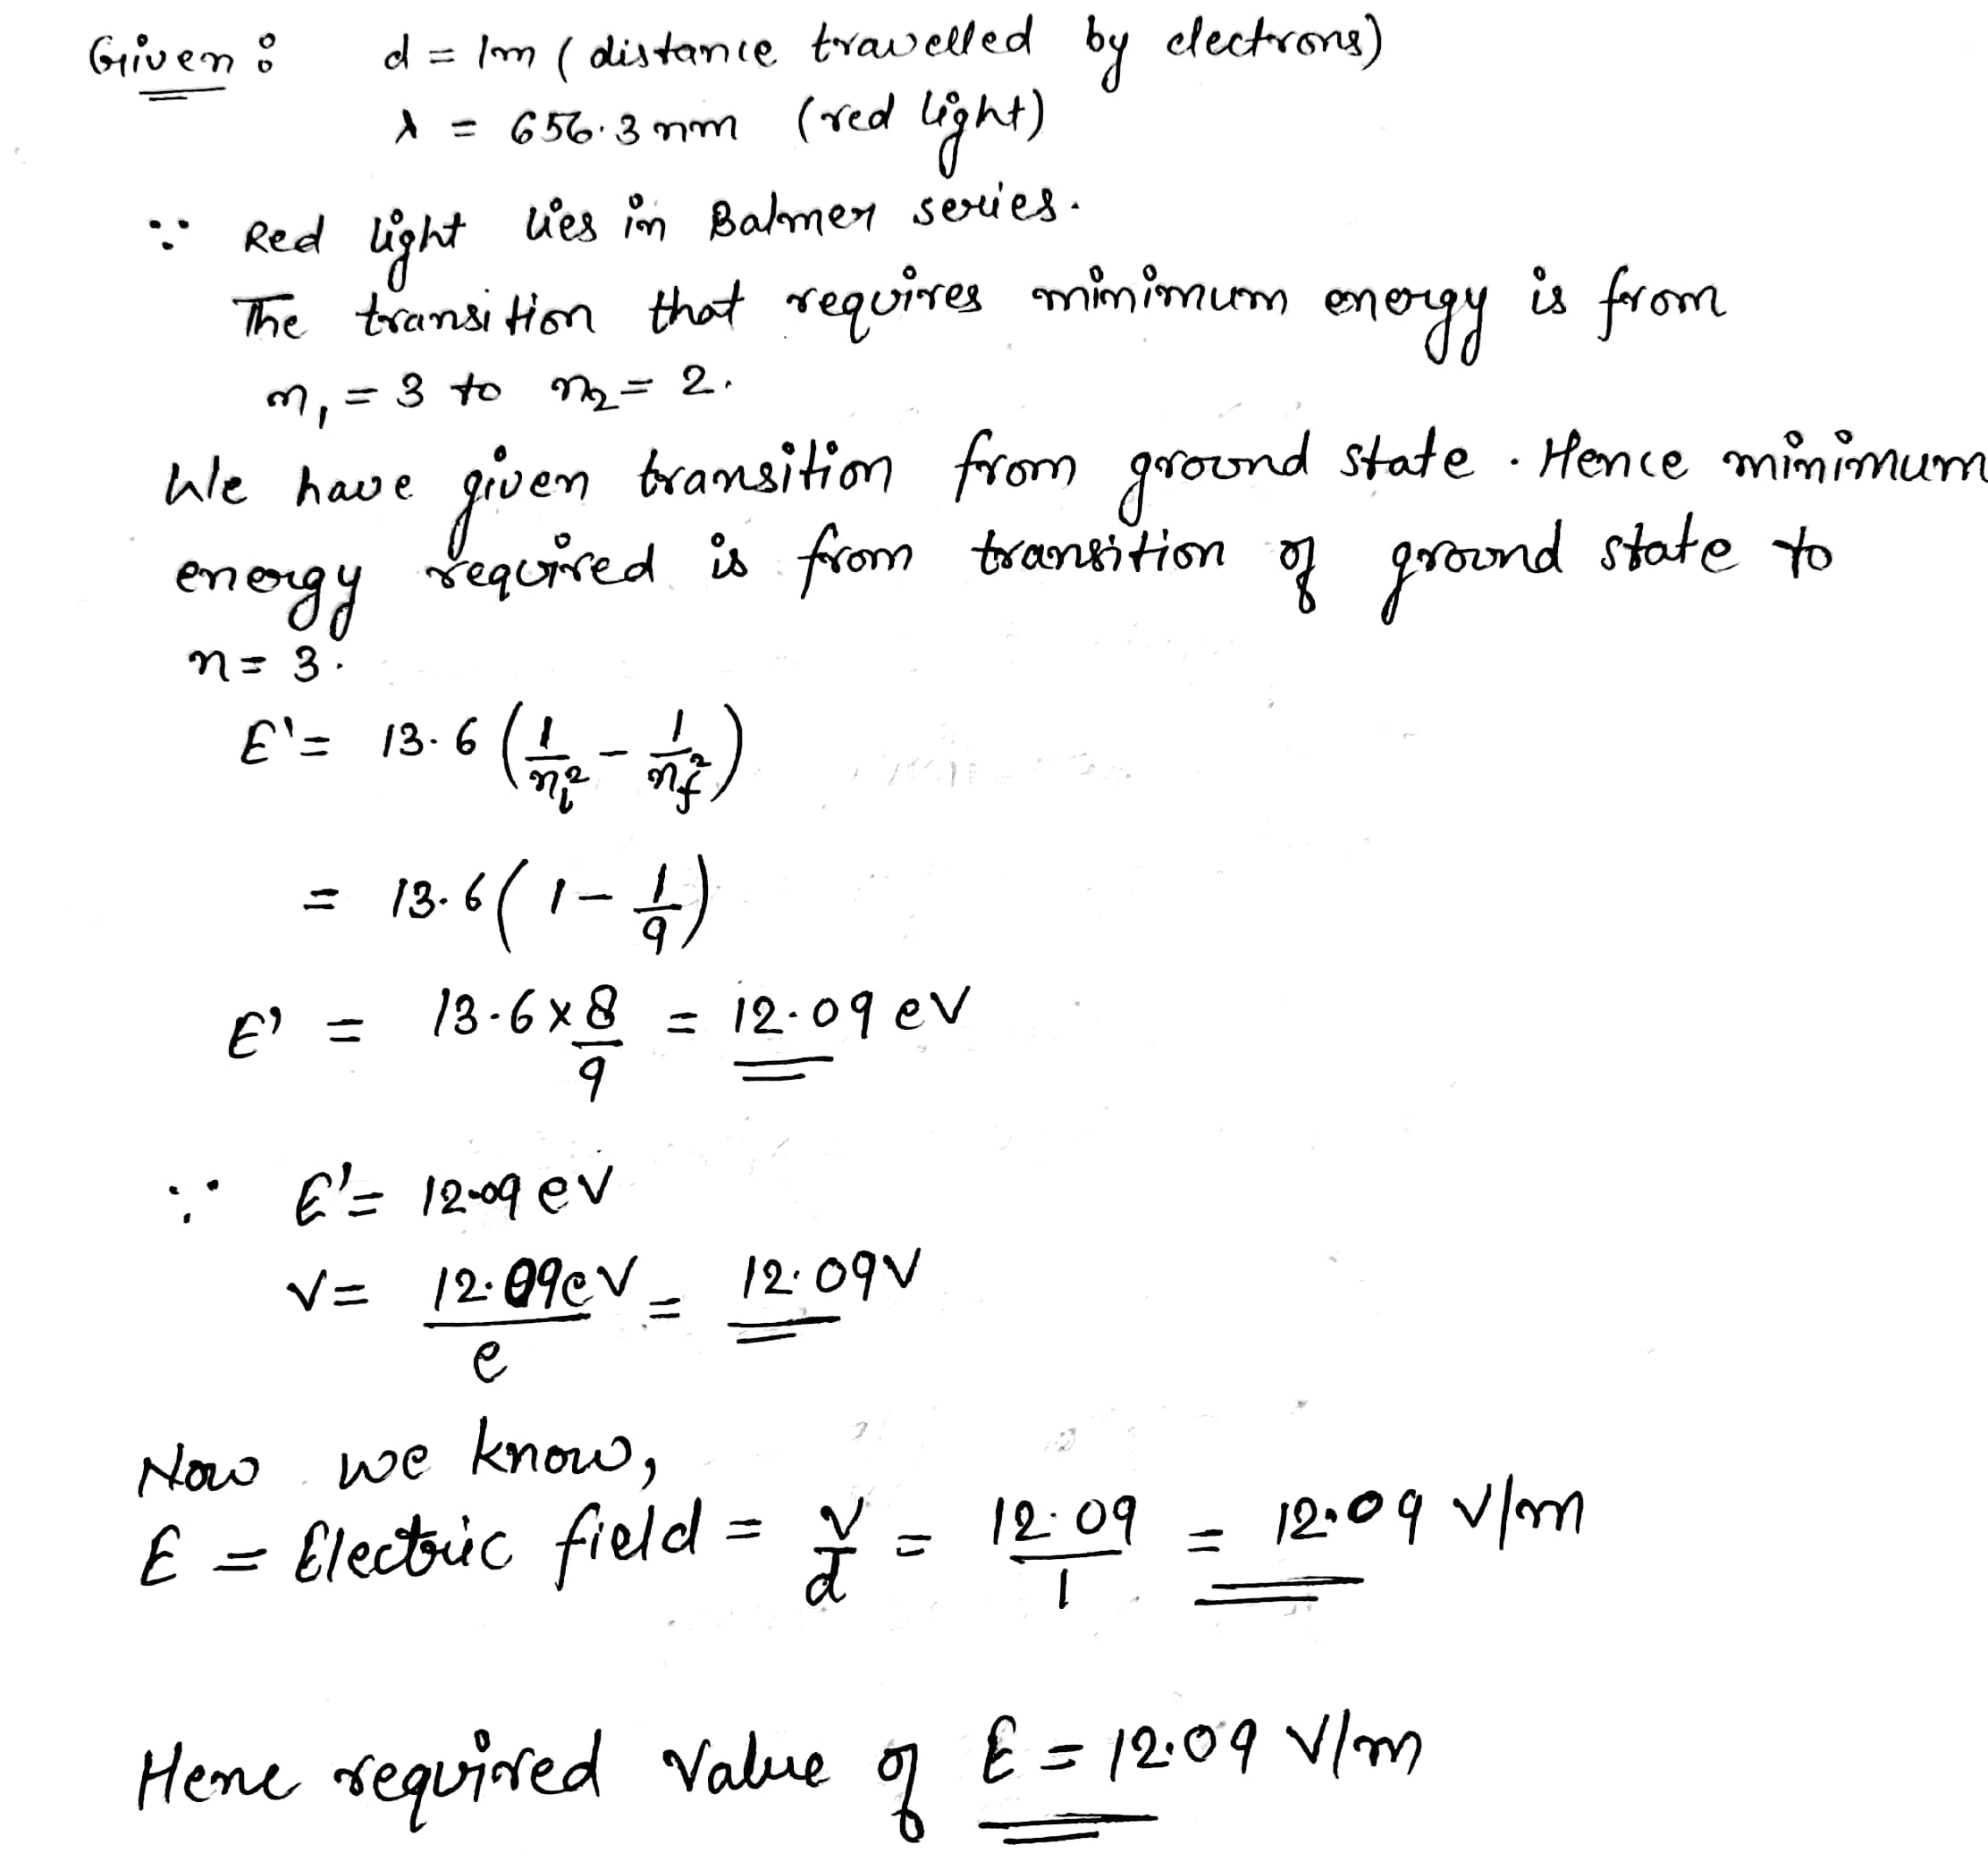 Given : d = 1m ( distance travelled by electrons)
λ = 656.3 nm (red light)
∵ Red light lies in Balmer series.
The transition that requires minimum energy is from
n₁ = 3 to n₂ = 2.
We have given transition from ground state. Hence minimum
energy required is from transition of ground state to
n = 3.
E' = 13.6 (1/nᵢ² - 1/n_f²)
= 13.6 ( 1 - 1/9)
E' = 13.6 × 8/9 = 12.09 eV
∵ E' = 12.09 eV
V = 12.09eV/e = 12.09V
Now we know,
E = Electric field = V/d = 12.09/1 = 12.09 V/m
Hene required value of E = 12.09 V/m